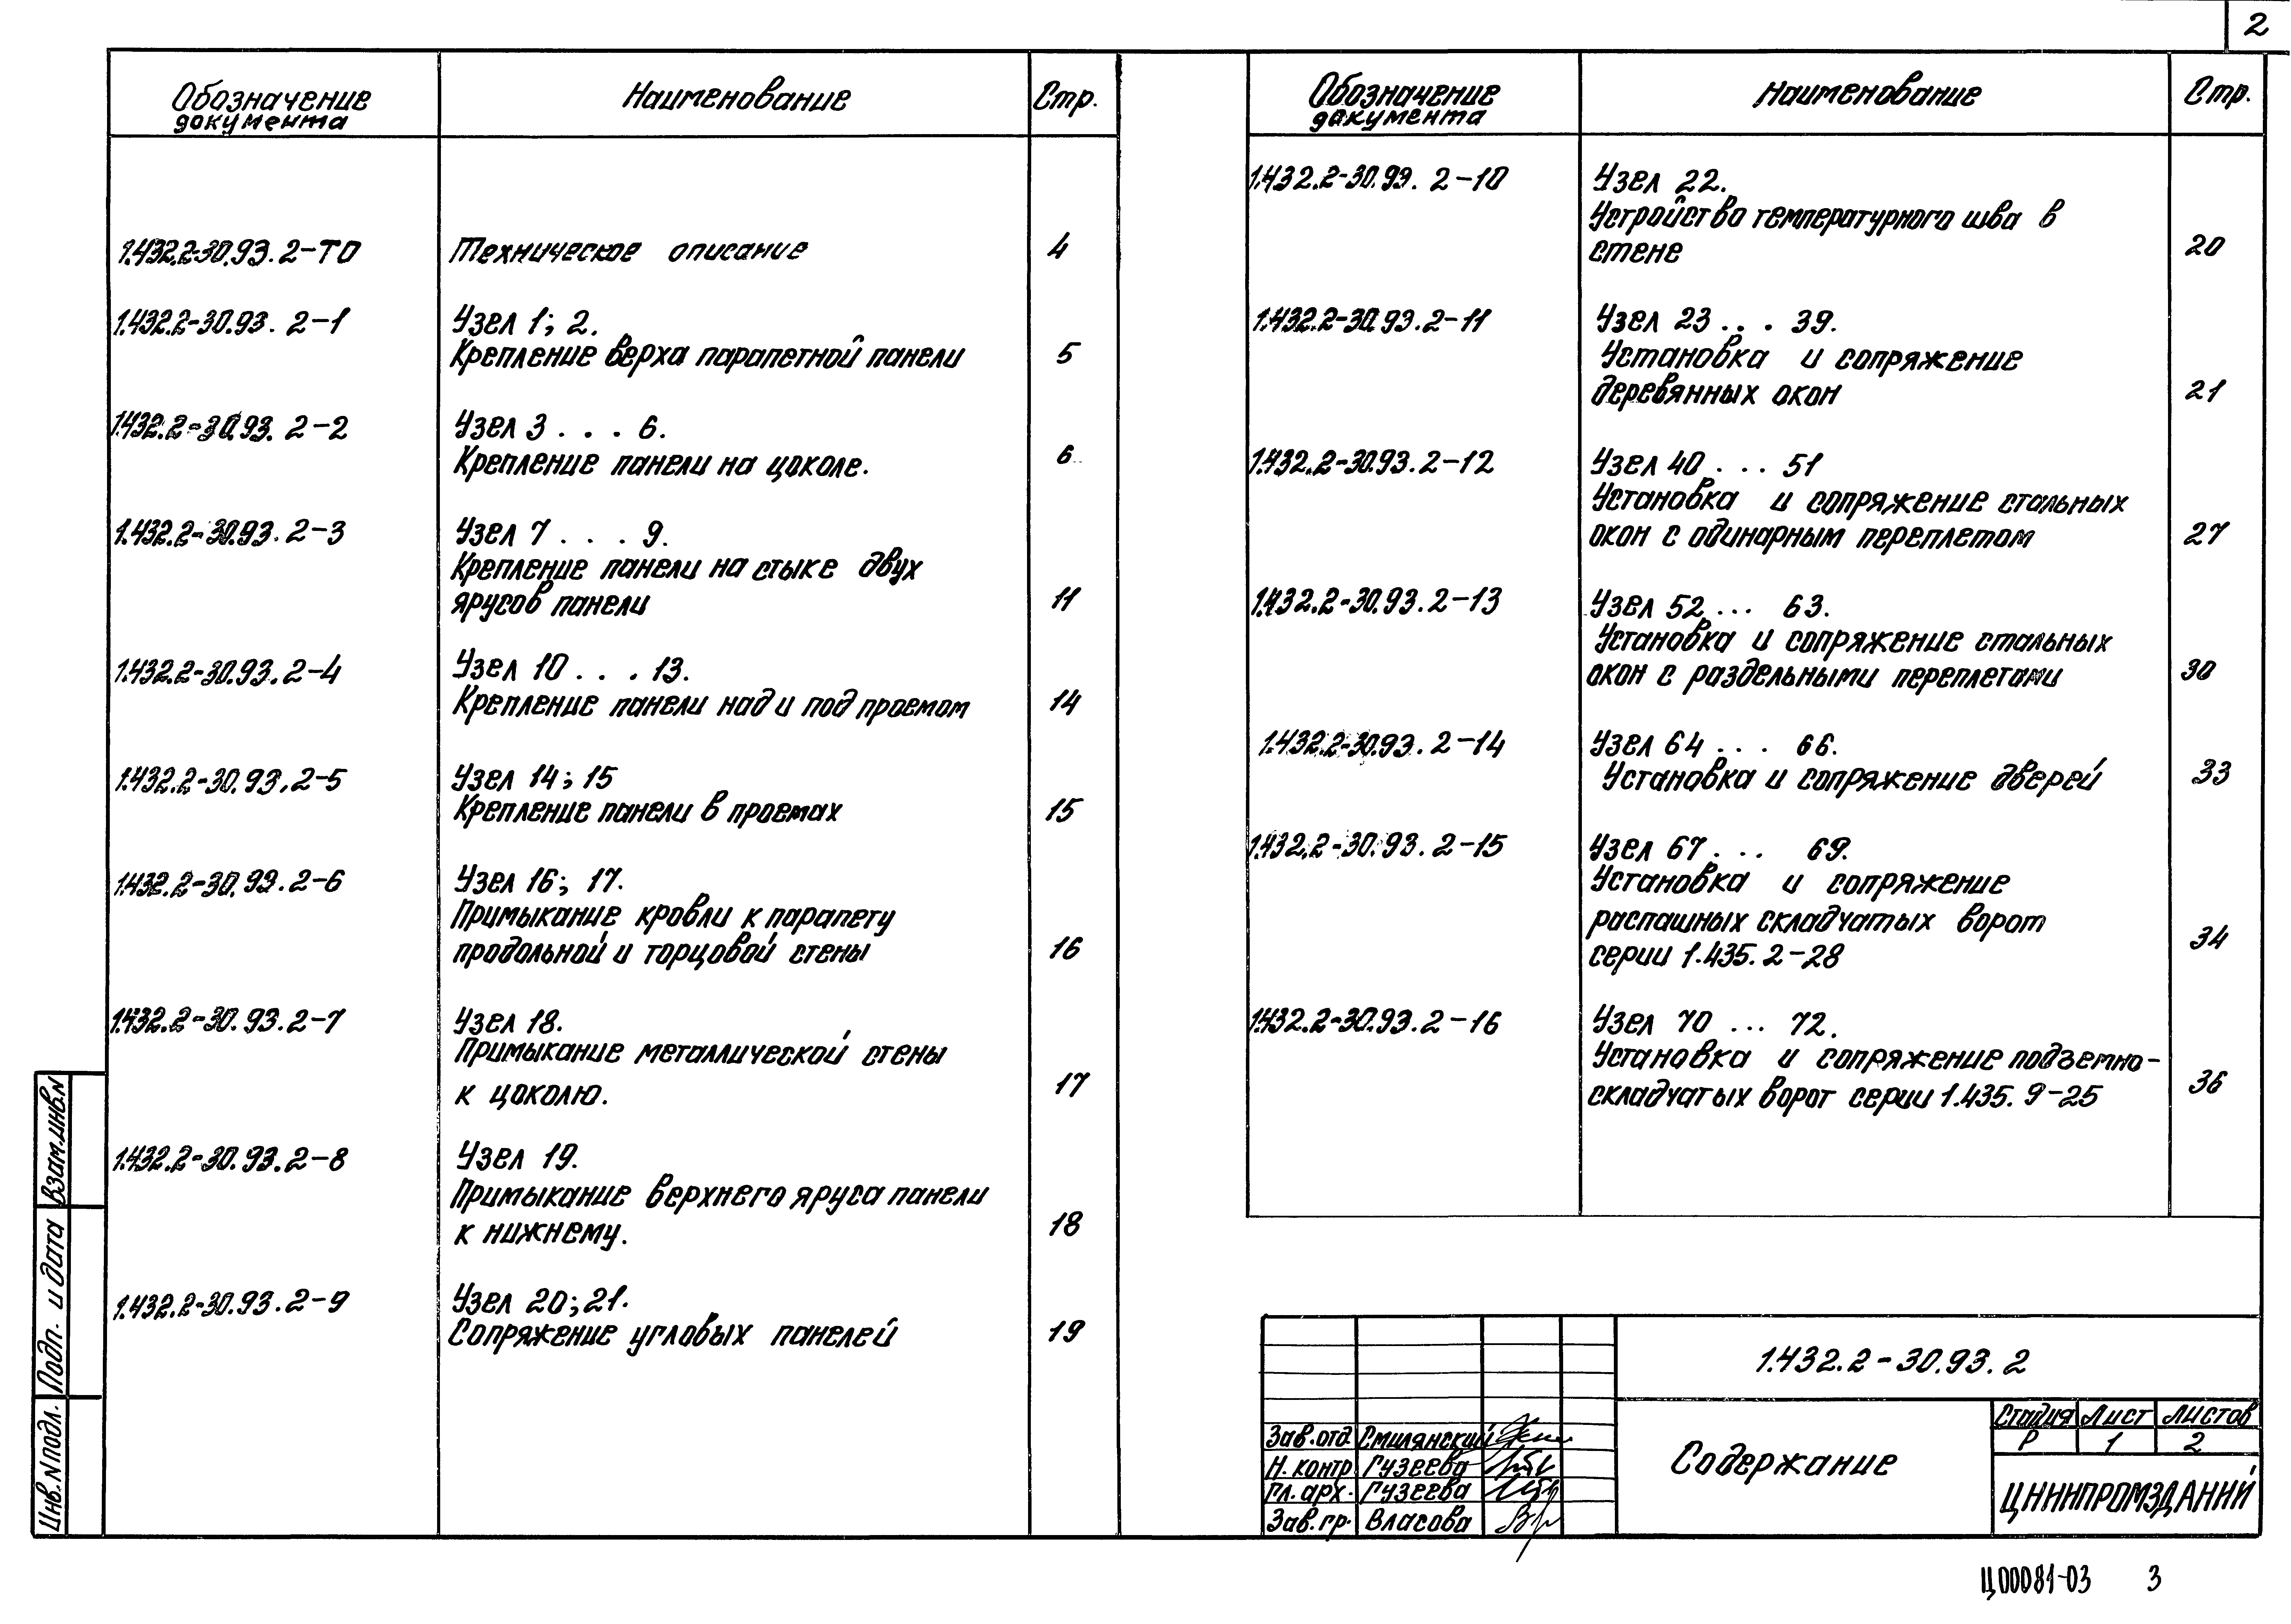 2
Обозначение документа Наименование Стр.
1.432.2-30.93.2-ТО Техническое описание 4
1.432.2-30.93.2-1 Узел 1; 2.
Крепление верха парапетной панели 5
1.432.2-30.93.2-2 Узел 3 . . . 6.
Крепление панели на цоколе. 6
1.432.2-30.93.2-3 Узел 7 . . . 9.
Крепление панели на стыке двух
ярусов панели 11
1.432.2-30.93.2-4 Узел 10 . . . 13.
Крепление панели над и под проемом 14
1.432.2-30.93.2-5 Узел 14; 15
Крепление панели в проемах 15
1.432.2-30.93.2-6 Узел 16; 17.
Примыкание кровли к парапету
продольной и торцовой стены 16
1.432.2-30.93.2-7 Узел 18.
Примыкание металлической стены
к цоколю. 17
1.432.2-30.93.2-8 Узел 19.
Примыкание верхнего яруса панели
к нижнему. 18
1.432.2-30.93.2-9 Узел 20; 21.
Сопряжение угловых панелей 19
Обозначение документа Наименование Стр.
1.432.2-30.93.2-10 Узел 22.
Устройство температурного шва в
стене 20
1.432.2-30.93.2-11 Узел 23 . . . 39.
Установка и сопряжение
деревянных окон 21
1.432.2-30.93.2-12 Узел 40 . . . 51
Установка и сопряжение стальных
окон с одинарным переплетом 27
1.432.2-30.93.2-13 Узел 52 ... 63.
Установка и сопряжение стальных
окон с раздельными переплетами 30
1.432.2-30.93.2-14 Узел 64 . . . 66.
Установка и сопряжение дверей 33
1.432.2-30.93.2-15 Узел 67 . . . 69.
Установка и сопряжение
распашных складчатых ворот
серии 1.435.2-28 34
1.432.2-30.93.2-16 Узел 70 ... 72.
Установка и сопряжение подземно-
складчатых ворот серии 1.435.9-25 36
Взам.инв.N
Подп. и дата
Инв.N подл.
1.432.2-30.93.2
Зав.отд Смилянский
Н.контр Гузеева
Гл.арх. Гузеева
Зав.гр. Власова
Содержание
Стадия Лист Листов
Р 1 2
ЦНИИПРОМЗДАНИЙ
Ц00081-03 3